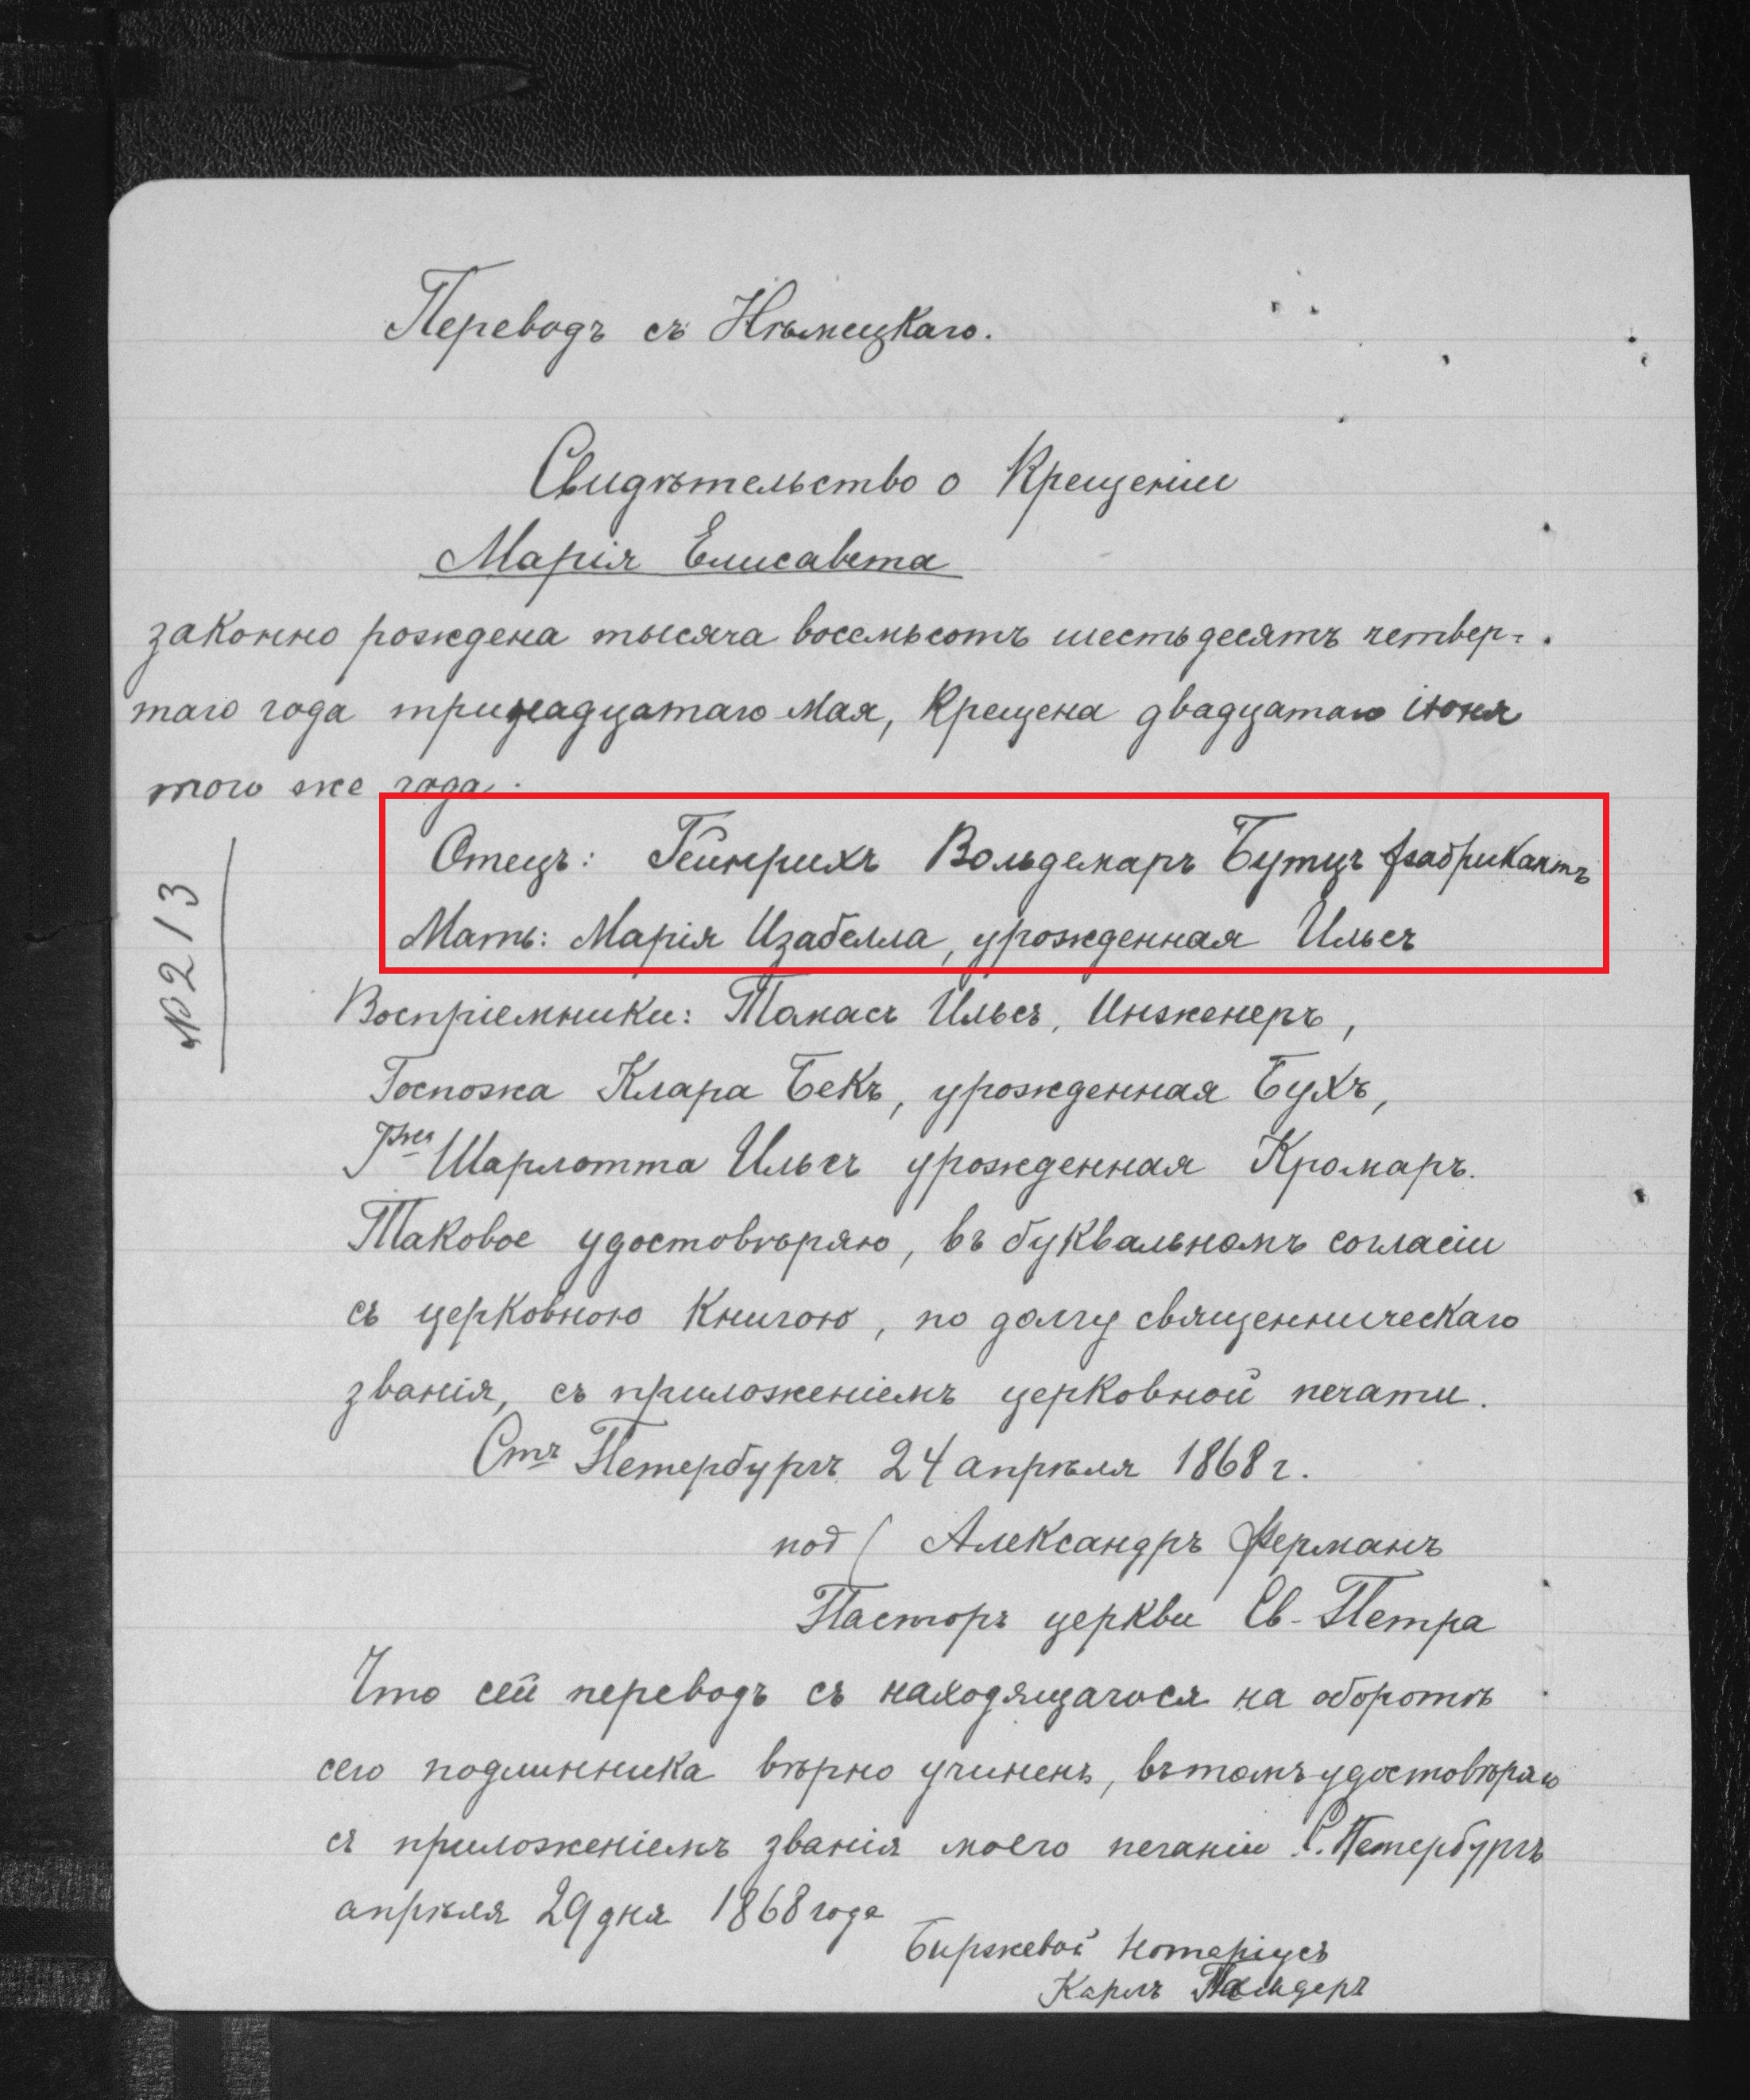 Переводъ съ Нѣмецкаго.
Свидѣтельство о Крещеніи
Марія Елисавета
законно рождена тысяча восемьсотъ шестьдесятъ четвер=
таго года тринадцатаго Мая, Крещена двадцатаго іюня
того же года.
Отецъ: Гейнрихъ Вольдемаръ Бутцъ фабрикантъ
Мать: Марія Изабелла, урожденная Ильсъ
№ 213
Воспріемники: Томасъ Ильсъ, Инженеръ,
Госпожа Клара Бекъ, урожденная Бухъ,
Г-жа Шарлотта Ильсъ урожденная Кромаръ.
Таковое удостовѣряю, въ буквальномъ согласіи
съ церковною Книгою, по долгу священническаго
званія, съ приложеніемъ церковной печати.
Стъ Петербургъ 24 апрѣля 1868 г.
под ( Александръ Ферманъ
Пасторъ церкви Св. Петра
Что сей переводъ съ находящагося на оборотѣ
сего подлинника вѣрно учиненъ, въ томъ удостовѣряю
съ приложеніемъ званія моего печати С. Петербургъ
апрѣля 29 дня 1868 года
Биржевой Нотаріусъ
Карлъ